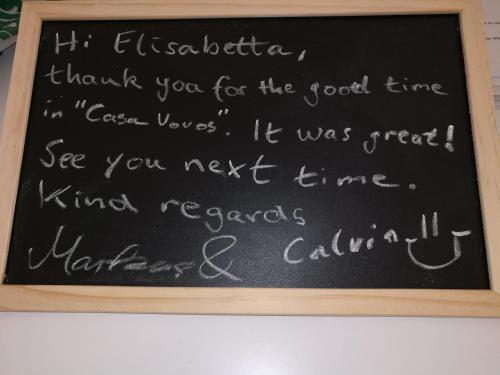 Hi Elisabetta,
thank you for the good time
in "Casa Vovos". It was great!
See you next time.
Kind regards
& Calvin